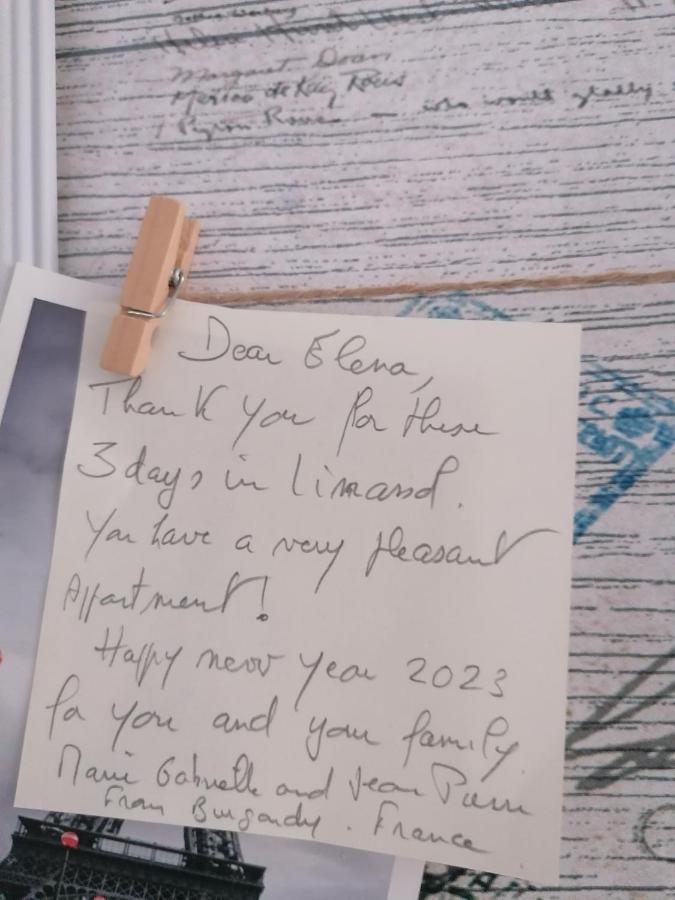 Margaret Doan
Dear Elena,
Thank you for these
3 days in limassol.
You have a very pleasant
Appartment!
Happy new year 2023
for you and your family
Marie Gabrielle and Jean Pierre
From Burgandy. France